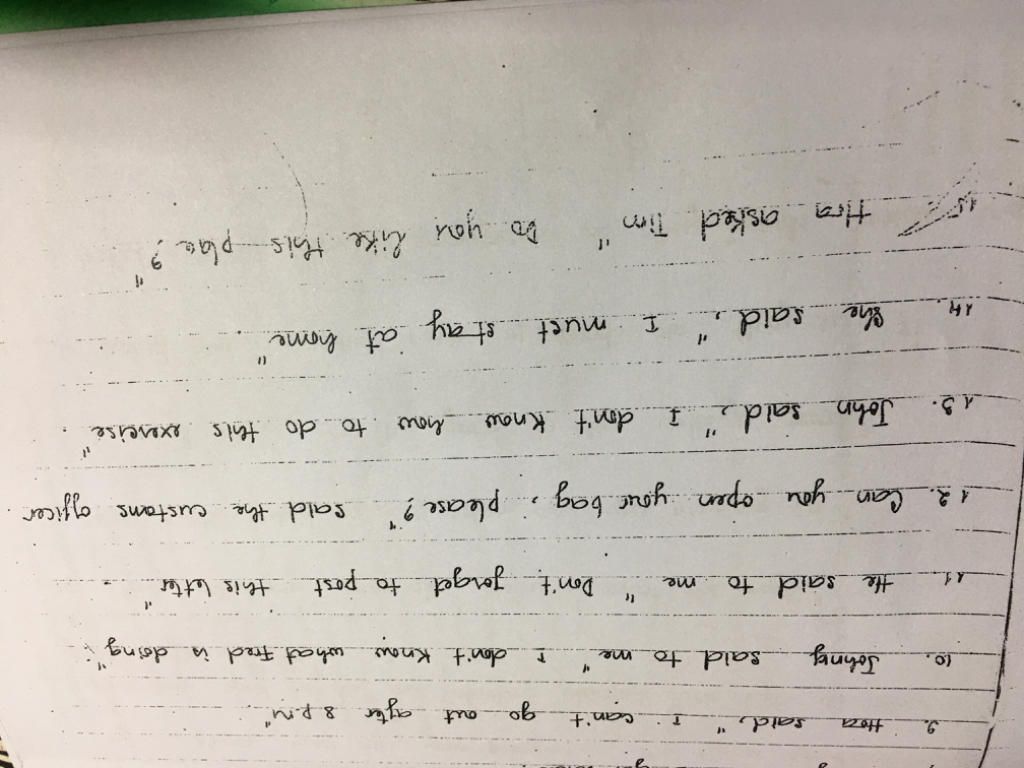 9. Hoa said, "I can't go out after 8 p.m"
10. Johny said to me "I don't know what Fred is doing".
11 He said to me "Don't forget to post this letter".
12. Can you open your bag, please?" said the customs officer.
13. John said, "I don't know how to do this exercise".
14. She said, "I must stay at home".
15 Hoa asked Tim "Do you like this place?"